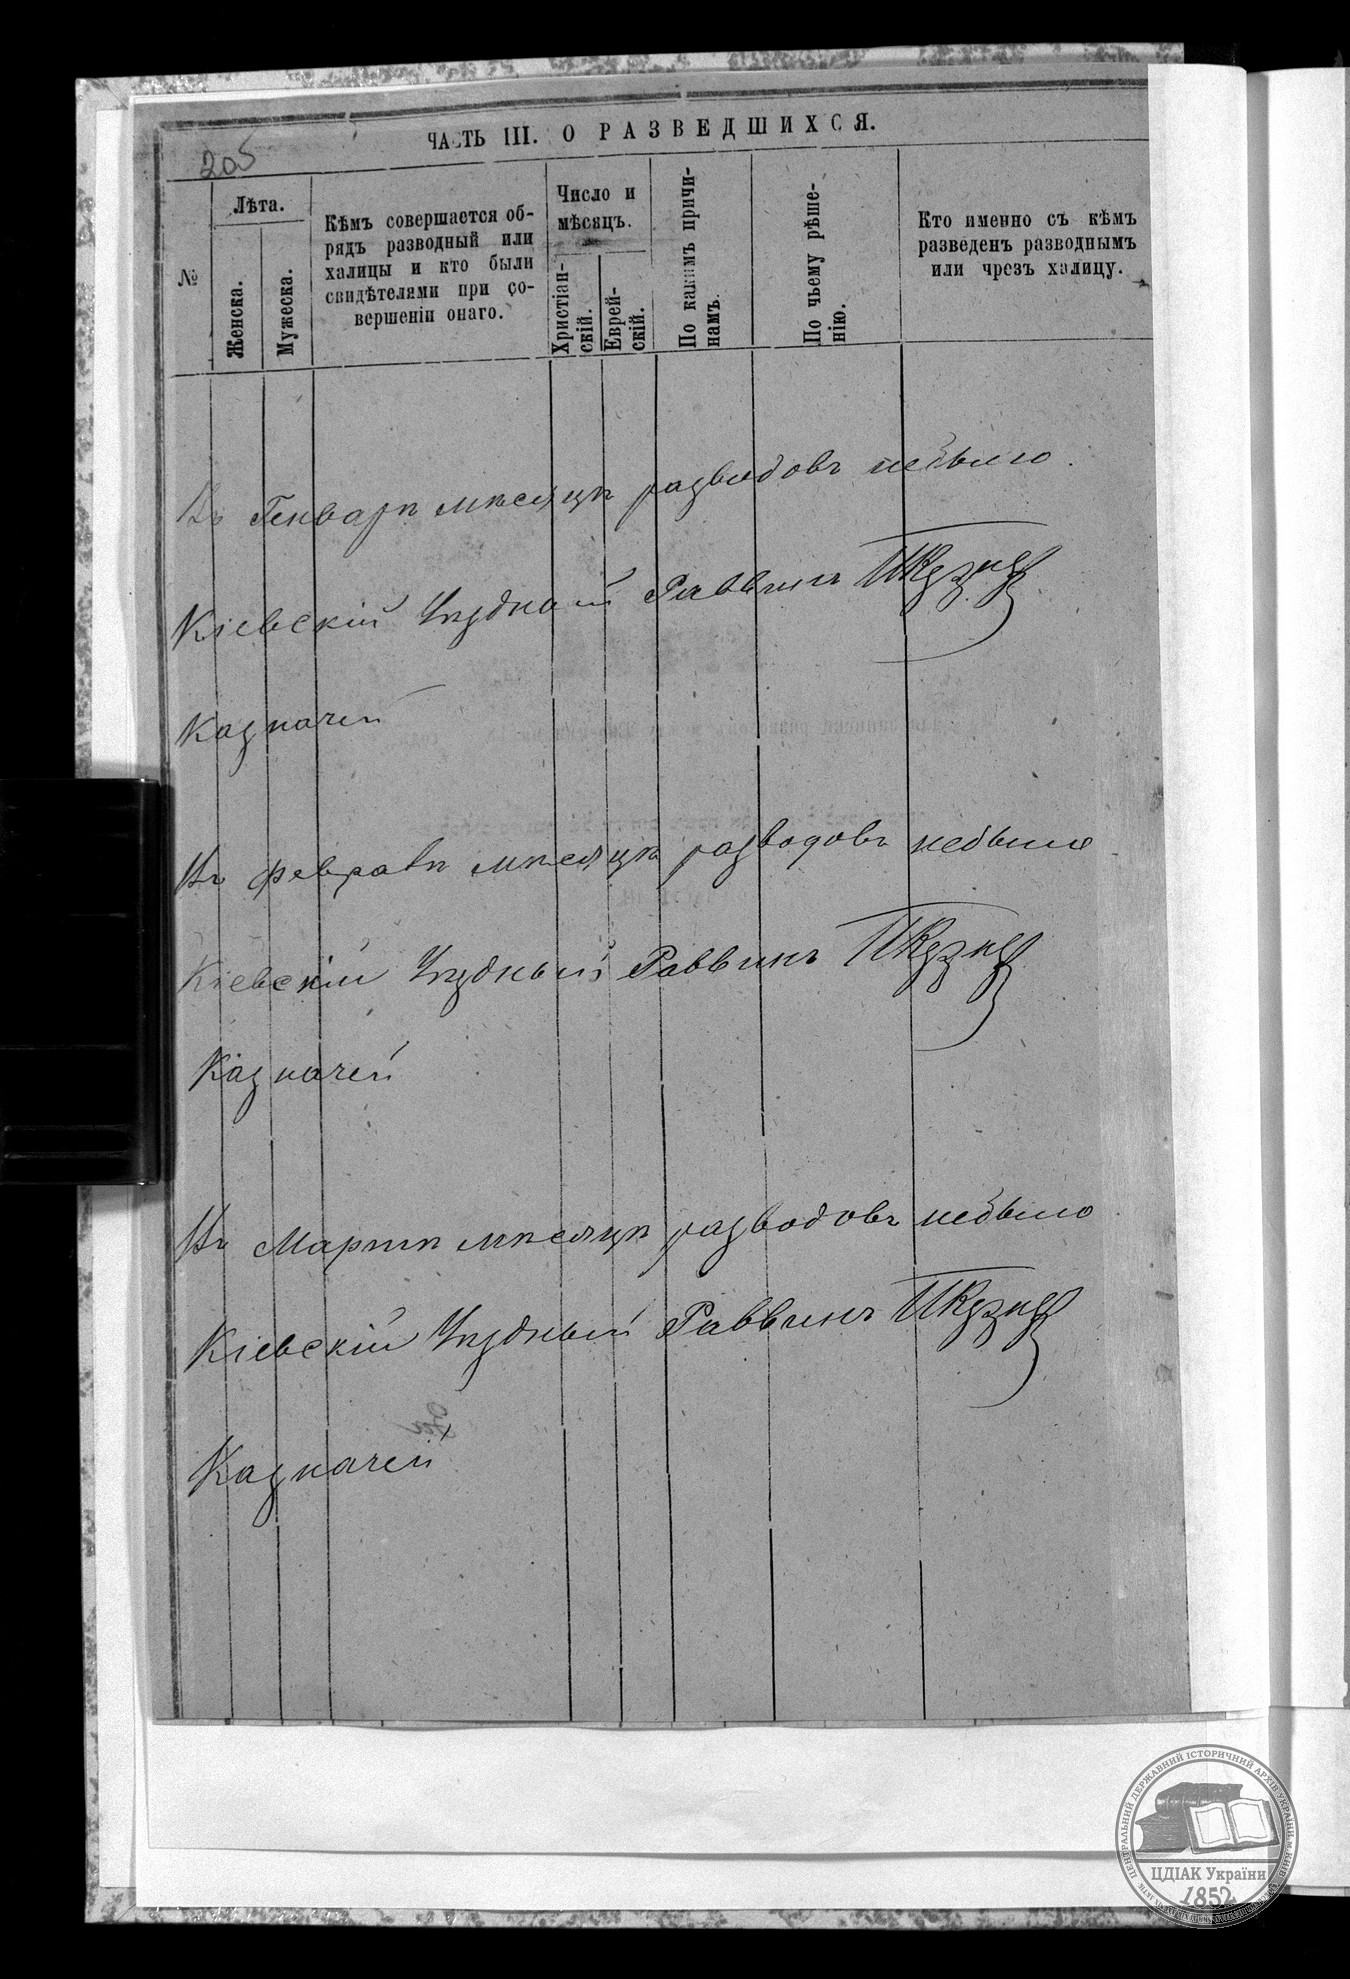 205
ЧАСТЬ III. О РАЗВЕДШИХСЯ.
№
Лѣта.
Женска.
Мужеска.
Кѣмъ совершается об-
рядъ разводный или
халицы и кто были
свидѣтелями при со-
вершеніи онаго.
Число и
мѣсяцъ.
Христіан-
скій.
Еврей-
скій.
По какимъ причи-
намъ.
По чьему рѣше-
нію.
Кто именно съ кѣмъ
разведенъ разводнымъ
или чрезъ халицу.
Въ Генварѣ мѣсяцѣ разводовъ небыло.
Кіевскій Уѣздный Раввинъ
Казначей
Въ Февралѣ мѣсяцѣ разводовъ небыло
Кіевскій Уѣздный Раввинъ
Казначей
Въ Мартѣ мѣсяцѣ разводовъ небыло
Кіевскій Уѣздный Раввинъ
Казначей
ЦЕНТРАЛЬНИЙ ДЕРЖАВНИЙ ІСТОРИЧНИЙ АРХІВ УКРАЇНИ, м. КИЇВ
ЦДІАК України
1852